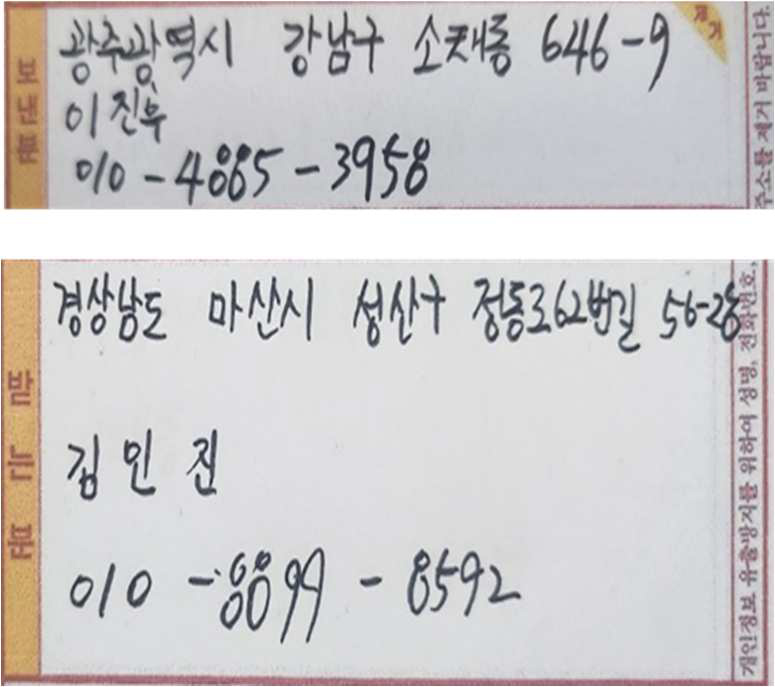 보내는분
광주광역시 강남구 소태동 646-9
이진우
010-4885-3958
주소를 제거 바랍니다.
받는분
경상남도 마산시 성산구 정동로62번길 56-28
김인진
010-8899-8592
개인정보 유출방지를 위하여 성명, 전화번호,